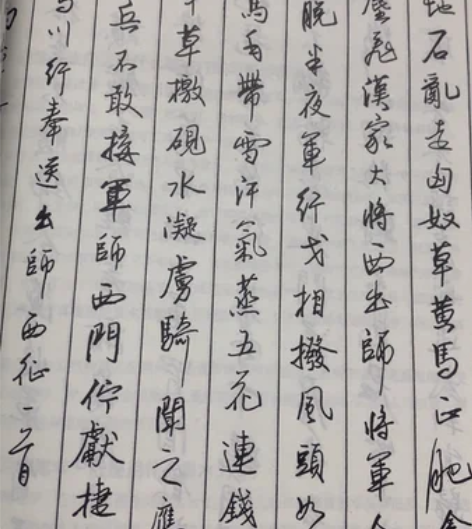 地石亂走匈奴草黃馬正肥金
塵飛漢家大將西出師將軍
脫半夜軍行戈相撥風頭如
馬毛帶雪汗氣蒸五花連錢
草檄硯水凝虜騎聞之應
兵不敢接軍師西門佇獻捷
馬川行奉送出師西征一首